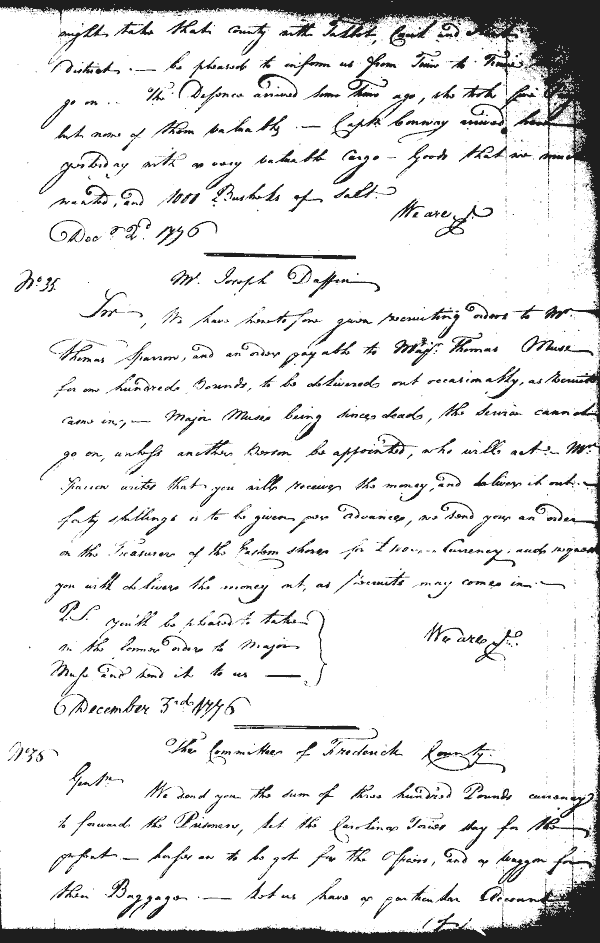 might take that county with Talbot, Cecil and Kent
District. — be pleased to inform us from Time to Time
go on .. The Defence arrived some Time ago, she took five
but none of them valuable — Capt. Conway arrived here
yesterday with a very valuable cargo — Goods that we much
wanted, and 1000 Bushels of Salt.
We are &c.
Dec.r 2.d 1776
No. 35. Mr. Joseph Daffin
Sir, We have heretofore given recruiting orders to Mr.
Thomas Sparrow, and an order payable to Majr. Thomas Muse
for one hundred Pounds, to be delivered out occasionally, as Recruits
came in; — Major Muse being since dead, the service cannot
go on, unless another Person be appointed, who will act — Mr.
Sparrow writes that you will receive the money, and deliver it out —
forty shillings is to be given per advance, we send you an order
on the Treasurer of the Eastern shore for £100 Currency, and request
you will deliver the money out, as Recruits may come in —
P.S. you'll be pleased to take
in the former order to Major
Muse and send it to us —
We are &c.
December 3rd 1776
No. 36 The Committee of Frederick County.
Gentn. We send you the sum of three hundred Pounds currency
to forward the Prisoners, let the Carolina Tories stay for the
present — horses are to be got for the Officers, and a waggon for
their Baggage — Let us have a particular Account
(of)